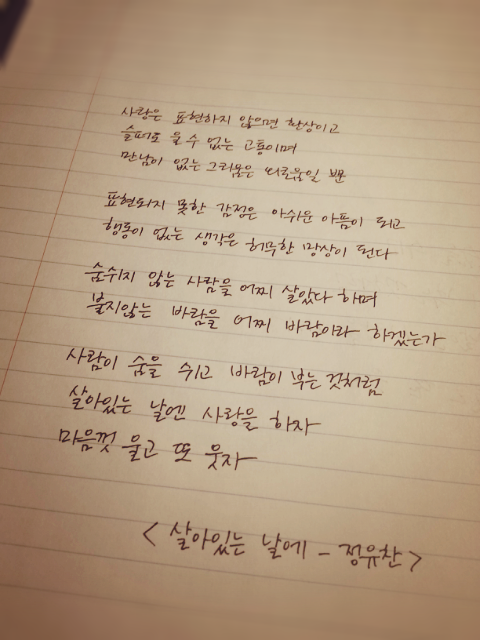 사랑은 표현하지 않으면 환상이고
슬퍼도 울 수 없는 고통이며
만남이 없는 그리움은 외로움일 뿐
표현되지 못한 감정은 아쉬운 아픔이 되고
행동이 없는 생각은 허무한 망상이 된다
숨쉬지 않는 사람을 어찌 살았다 하며
불지않는 바람을 어찌 바람이라 하겠는가
사람이 숨을 쉬고 바람이 부는 것처럼
살아있는 날엔 사랑을 하자
마음껏 울고 또 웃자
< 살아있는 날에 - 정유찬 >